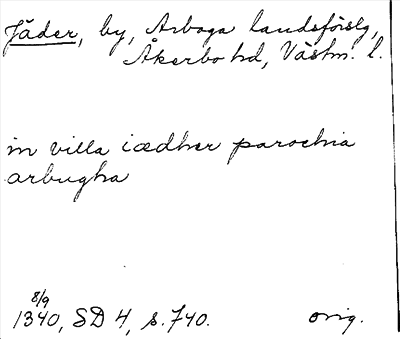 Jäder, by, Arboga landsförslg,
Åkerbo hd, Västm. l.
in villa iædher parochia
arbugha
8/9
1340, SD 4, s. 740. orig.